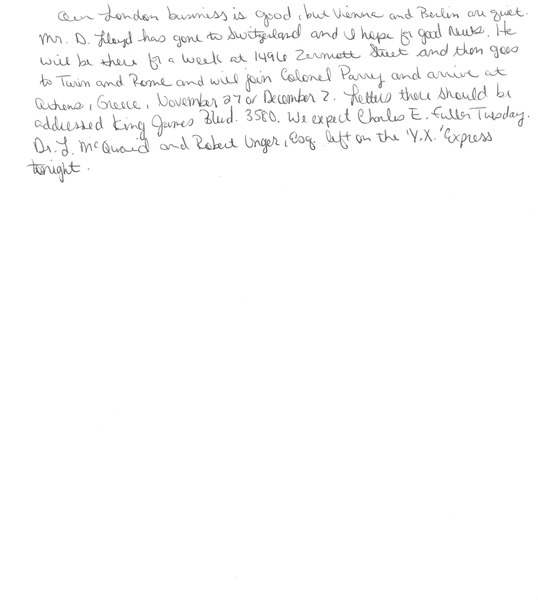 Our London business is good, but Vienna and Berlin are quiet.
Mr. D. Lloyd has gone to Switzerland and I hope for good news. He
will be there for a week at 1496 Zermott Street and then goes
to Turin and Rome and will join Colonel Parry and arrive at
Athens, Greece, November 27 or December 2. Letters there should be
addressed King James Blvd. 3580. We expect Charles E. Fuller Tuesday.
Dr. L. McQuaid and Robert Unger, Esq. left on the 'Y.X.' Express
tonight.